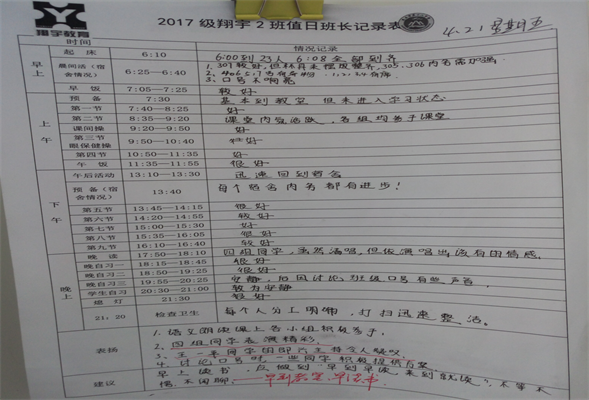 翔宇教育
2017 级翔宇 2 班值日班长记录表
4.21 星期五
时间 情况记录
早上 起床 6:10 6:00到23人 6:08全部到齐
晨间活(宿舍情况) 6:25—6:40 1. 307较好,但
3. 口号不响亮
早饭 7:05—7:25 较好
上午 预备 7:30 基本到教室 但未进入学习状态
第一节 7:40—8:25 好
第二节 8:35—9:20 课堂内容活跃,各组均善于课堂
课间操 9:20—9:50 好
第三节 眼保健操 9:50—10:40 好
第四节 10:50—11:35 好
午饭 11:35—11:55 很好
下午 午后活动 13:10—13:30 迅速回到宿舍
预备(宿舍情况) 13:40 每个宿舍内务都有进步!
第五节 13:45—14:15 很好
第六节 14:20—14:55 较好
第七节 15:00—15:30 好
第八节 15:35—16:05 很好
第九节 16:10—16:40 较好
晚上 晚读 17:50—18:10 四组同学,虽然演唱,但依演唱出该有的情感。
晚自习一 18:15—18:45 很好
晚自习二 18:50—19:25 很好
晚自习三 19:55—20:25 安静,后因讨论班级口号有些声音,
学生自习 20:30—21:00 较为安静
熄灯 21:30 很好
21:20 检查卫生 每个人分工明确,打扫迅速 整洁。
表扬 1. 语文朗读课上各小组积极参与,
2. 四组同学表演精彩,
4. 讨论口号时,一些同学积极提供方案
建议 早上读书,应做到"早到早读,来到就读",不等不
情,不闲聊,——早到教室,早读书